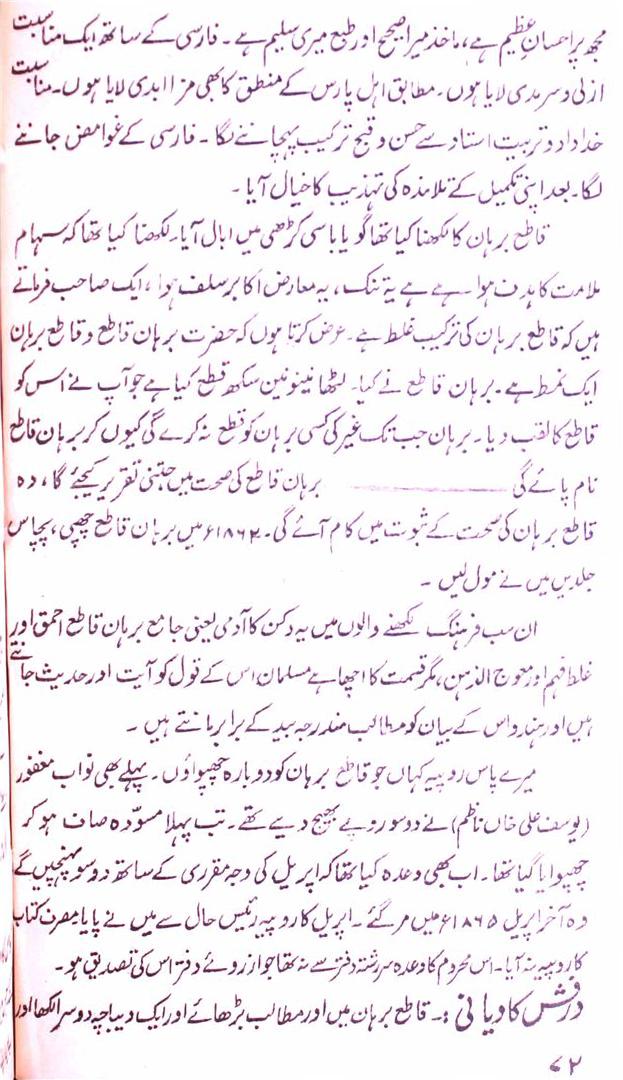 مجھ پر احسانِ عظیم ہے، ماخذ میرا صحیح اور طبع میری سلیم ہے۔ فارسی کے ساتھ ایک مناسبت
ازلی و سرمدی لایا ہوں۔ مطابق اہل پارس کے منطق کا بھی مزا ابدی لایا ہوں۔ مناسبت
خداداد و تربیت استاد سے حسن و قبح ترکیب پہچاننے لگا۔ فارسی کے غوامض جاننے
لگا۔ بعد اپنی تکمیل کے تلامذہ کی تہذیب کا خیال آیا۔
قاطع برہان کا لکھنا کیا تھا گویا باسی کڑھی میں ابال آیا۔ لکھنا کیا تھا کہ سہام
ملامت کا ہدف ہوا۔ ہے ہے یہ تنک، یہ معارض اکابر سلف ہوا، ایک صاحب فرماتے
ہیں کہ قاطع برہان کی ترکیب غلط ہے۔ عرض کرتا ہوں کہ حضرت برہان قاطع و قاطع برہان
ایک نمط ہے۔ برہان قاطع نے کیا۔ لٹھا نینو نین سکھ قطع کیا ہے جو آپ نے اس کو
قاطع کا لقب دیا۔ برہان جب تک غیر کی کسی برہان کو قطع نہ کرے گی کیوں کر برہان قاطع
نام پائے گی ــــــــــ برہان قاطع کی صحت میں جتنی تقریر کیجئے گا، وہ
قاطع برہان کی صحت کے ثبوت میں کام آئے گی۔ ۱۸۶۲ء میں برہان قاطع چھپی، پچاس
جلدیں میں نے مول لیں۔
ان سب فرہنگ لکھنے والوں میں یہ دکن کا آدمی یعنی جامع برہان قاطع احمق اور
غلط فہم اور معوج الذہن، مگر قسمت کا اچھا ہے مسلمان اس کے قول کو آیت اور حدیث جانتے
ہیں اور ہندو اس کے بیان کو مطالب مندرجہ بید کے برابر مانتے ہیں۔
میرے پاس روپیہ کہاں جو قاطع برہان کو دوبارہ چھپواؤں۔ پہلے بھی نواب مغفور
(یوسف علی خاں ناظم) نے دو سو روپے بھیج دیے تھے۔ تب پہلا مسوّدہ صاف ہو کر
چھپوایا گیا تھا۔ اب بھی وعدہ کیا تھا کہ اپریل کی وجہ مقرری کے ساتھ دو سو پہنچیں گے
وہ آخر اپریل ۱۸۶۵ء میں مر گئے۔ اپریل کا روپیہ رئیس حال سے میں نے پایا، مصرف کتاب
کا روپیہ نہ آیا۔ اس مرحوم کا وعدہ سررشتہ دفتر سے نہ تھا جو از روئے دفتر اس کی تصدیق ہو۔
درفش کاویانی:۔ قاطع برہان میں اور مطالب بڑھائے اور ایک دیباچہ دوسرا لکھا اور
۷۲